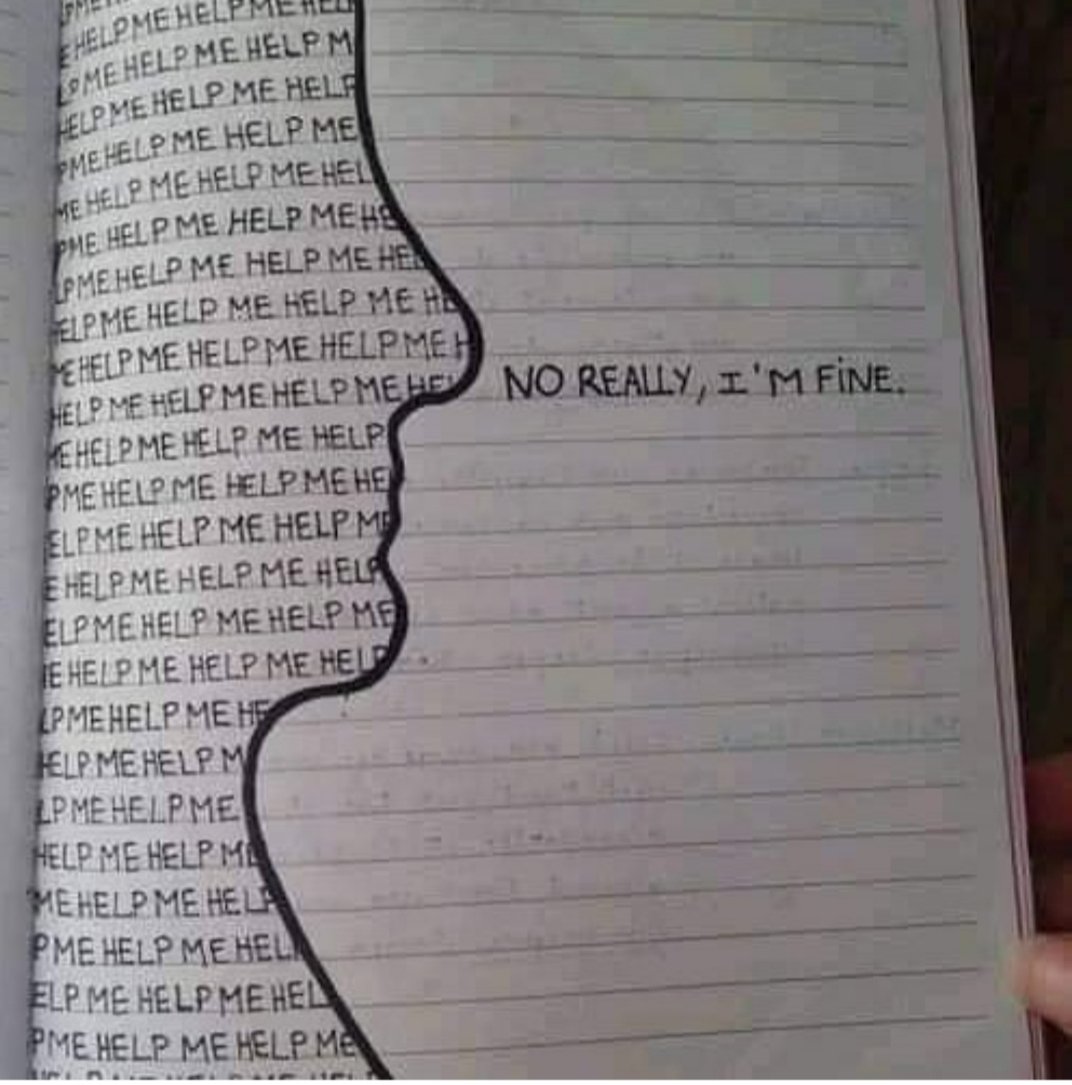 HELP ME HELP ME HEL
LP ME HELP ME HELP M
HELP ME HELP ME HELP
PME HELP ME HELP ME
ME HELP ME HELP ME HEL
PME HELP ME HELP ME HE
LPME HELP ME HELP ME HEL
ELPME HELP ME HELP ME HE
ME HELP ME HELP ME HELP ME H
HELP ME HELP ME HELP ME HEL NO REALLY, I'M FiNE.
ME HELP ME HELP ME HELP
PME HELP ME HELP ME HEL
ELPME HELP ME HELP ME
E HELP ME HELP ME HELP
ELPME HELP ME HELP ME
E HELP ME HELP ME HELP
LPME HELP ME HE
HELP ME HELP M
LPME HELP ME
HELP ME HELP ME
ME HELP ME HELP
PME HELP ME HELP
ELPME HELP ME HEL
PME HELP ME HELP ME